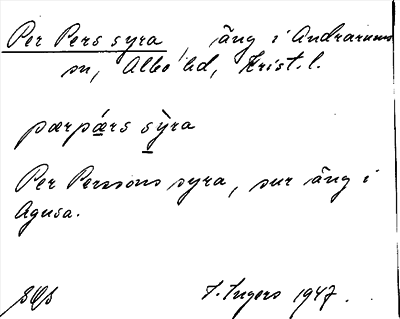 Per Pers syra, äng i Andrarums
sn, Albo hd, Krist. l.
pærpǽrs sỳra
Per Perssons syra, sur äng i
Agusa.
I. Ingers 1947.